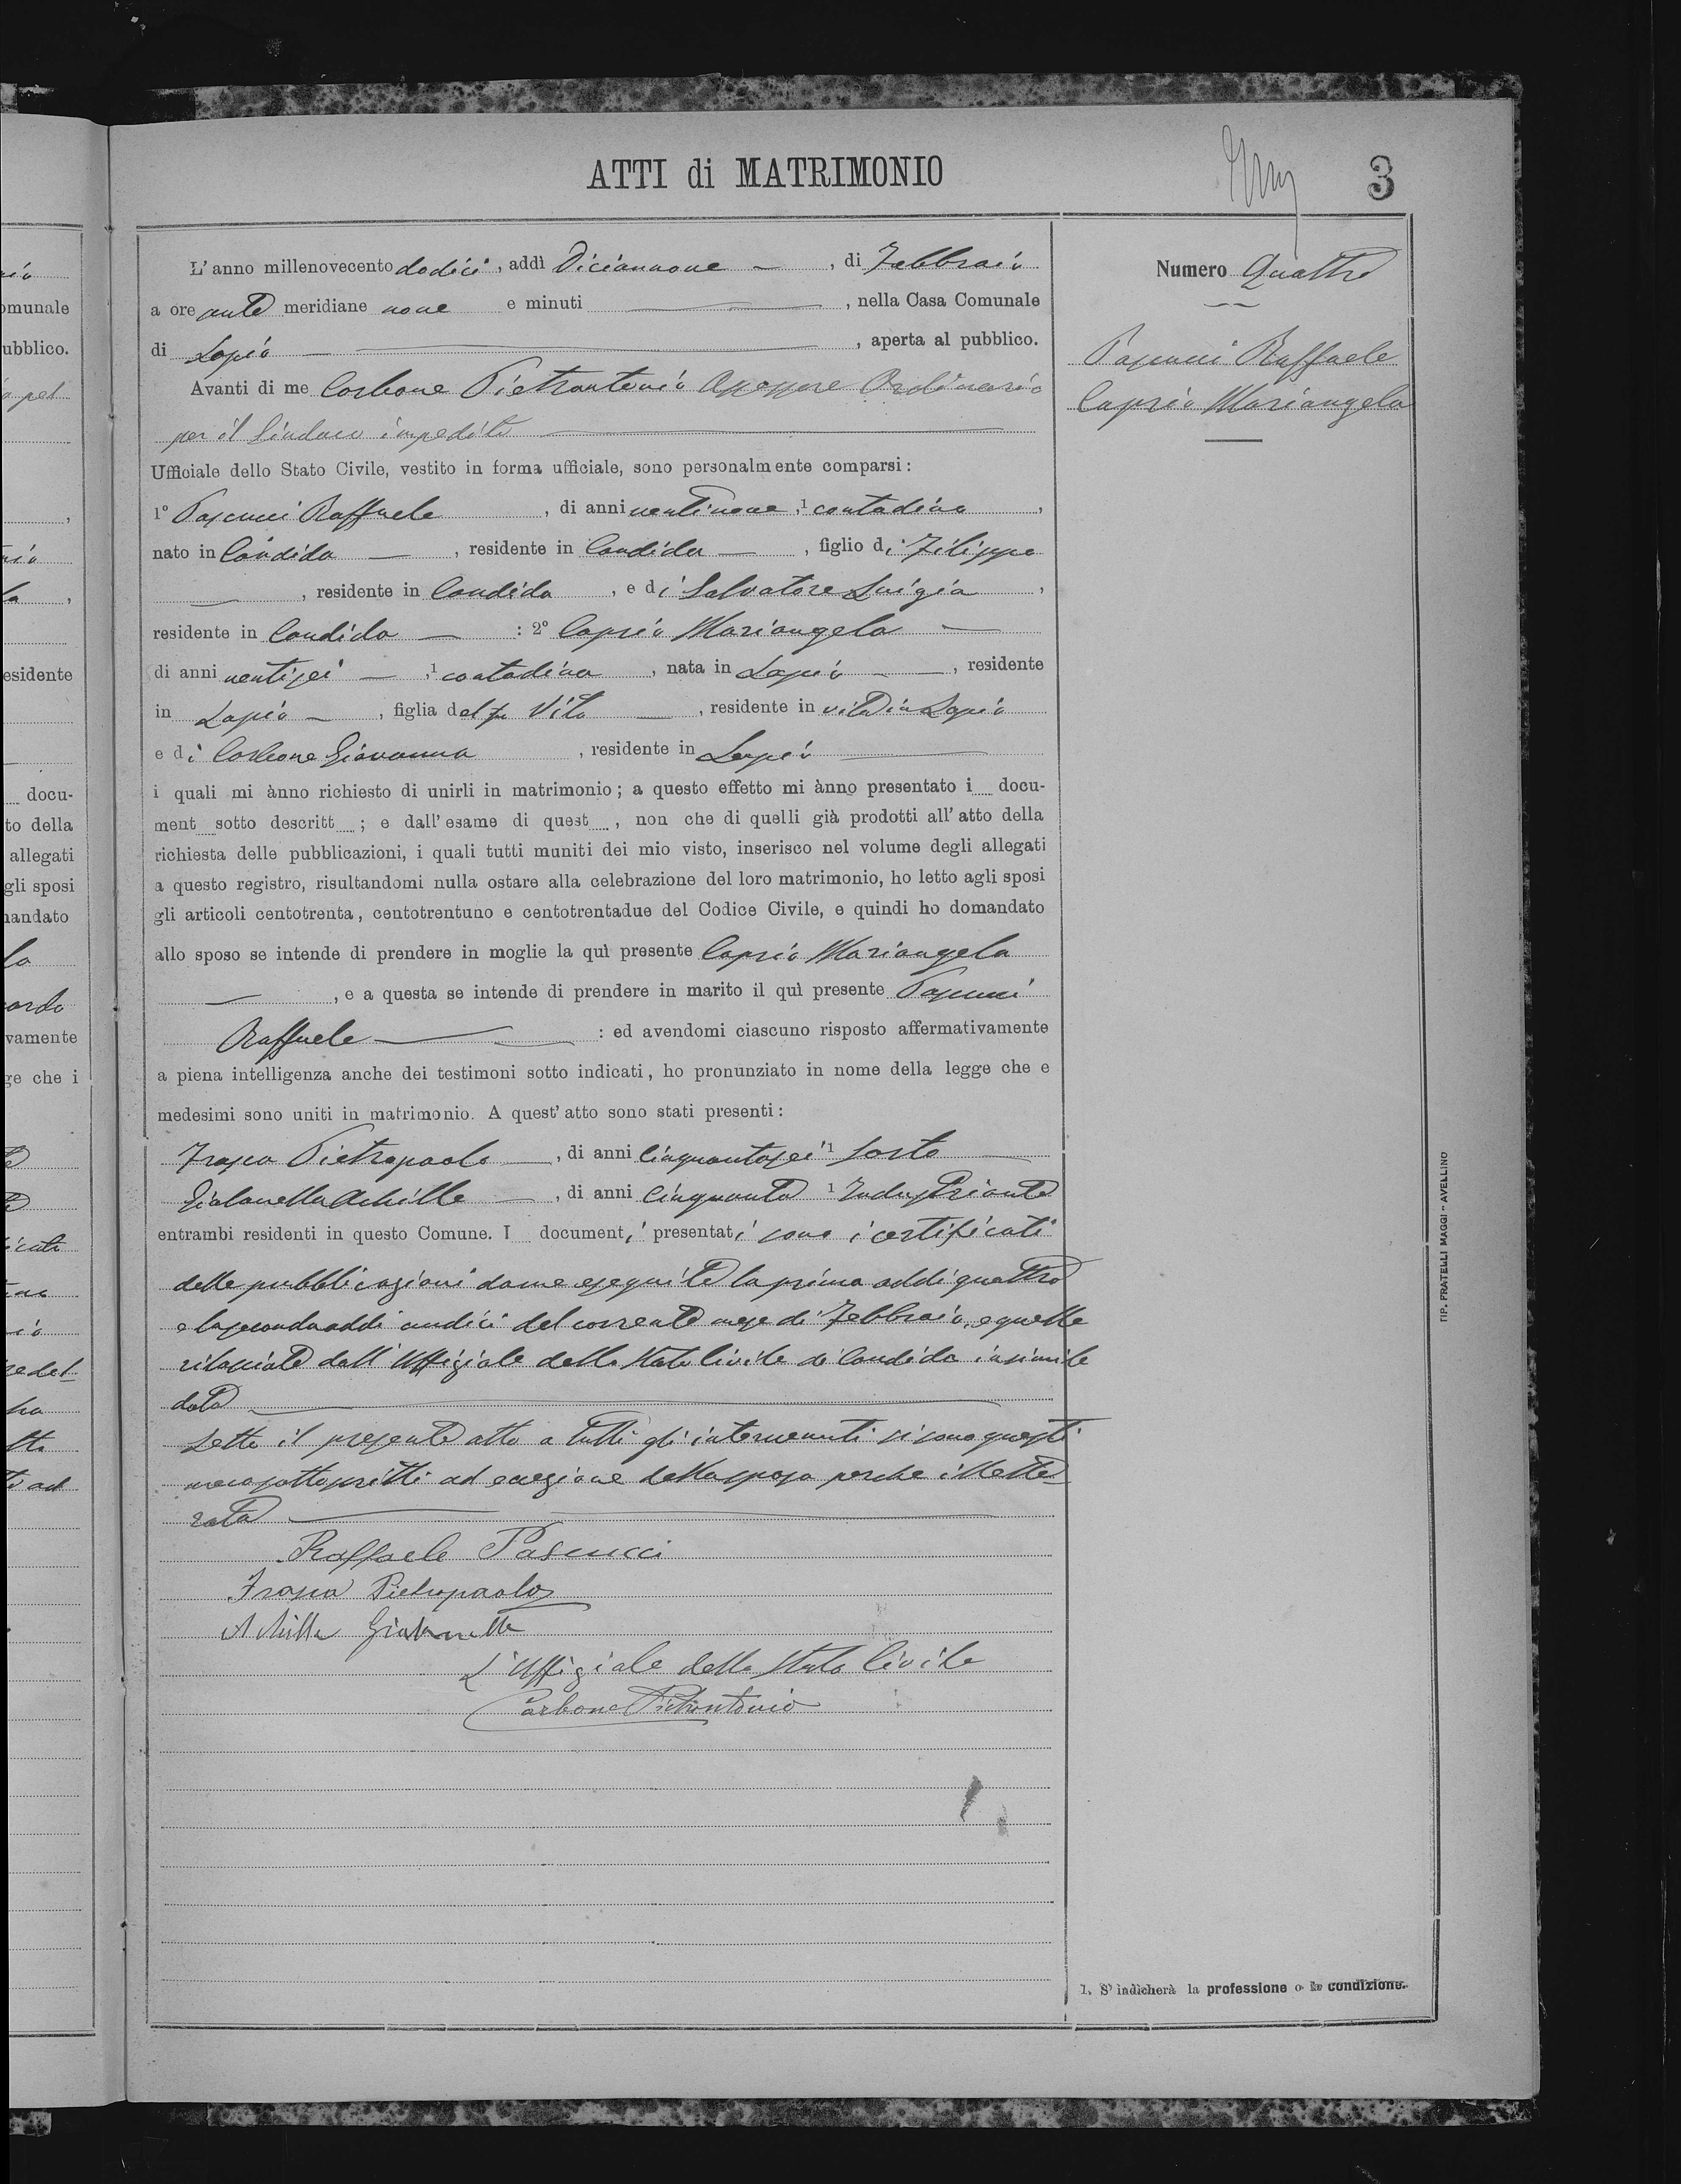 ATTI di MATRIMONIO
3
L'anno millenovecento dodici, addì Diciannove, di Febbraio
a ore ante meridiane nove e minuti, nella Casa Comunale
di Lapio, aperta al pubblico.
Avanti di me Carbone Pietrantonio Assessore Ordinario
per il Sindaco impedito
Ufficiale dello Stato Civile, vestito in forma ufficiale, sono personalmente comparsi:
1º Pascucci Raffaele, di anni ventinove, ¹ contadino,
nato in Candida, residente in Candida, figlio di Filippo
, residente in Candida, e di Salvatore Luigia,
residente in Candida : 2º Caprio Mariangela
di anni ventisei, ¹ contadina, nata in Lapio, residente
in Lapio, figlia del fu Vito, residente in vita in Lapio
e di Carbone Giovanna, residente in Lapio
i quali mi ànno richiesto di unirli in matrimonio; a questo effetto mi ànno presentato i docu-
ment sotto descritt ; e dall'esame di quest , non che di quelli già prodotti all'atto della
richiesta delle pubblicazioni, i quali tutti muniti dei mio visto, inserisco nel volume degli allegati
a questo registro, risultandomi nulla ostare alla celebrazione del loro matrimonio, ho letto agli sposi
gli articoli centotrenta, centotrentuno e centotrentadue del Codice Civile, e quindi ho domandato
allo sposo se intende di prendere in moglie la quì presente Caprio Mariangela
, e a questa se intende di prendere in marito il quì presente Pascucci
Raffaele : ed avendomi ciascuno risposto affermativamente
a piena intelligenza anche dei testimoni sotto indicati, ho pronunziato in nome della legge che e
medesimi sono uniti in matrimonio. A quest'atto sono stati presenti:
Frasca Pietropaolo, di anni cinquantasei ¹ sarto
Gialanella Achille, di anni cinquanta ¹ Industriante
entrambi residenti in questo Comune. I documenti presentati sono i certificati
delle pubblicazioni da me eseguite la prima addi quattro
e la seconda addi undici del corrente mese di Febbraio, e quelle
rilasciate dall'Uffiziale dello Stato Civile di Candida in simile
data
Letto il presente atto a tutti gli intervenuti si sono questi
meco sottoscritti ad eccezione della sposa perche illette
rata
Raffaele Pascucci
Frasca Pietropaolo
Achille Gialanella
L'Uffiziale dello Stato Civile
Carbone Pietrantonio
Numero Quattro
Pascucci Raffaele
Caprio Mariangela
1. S'indicherà la professione o la condizione.
TIP. FRATELLI MAGGI - AVELLINO